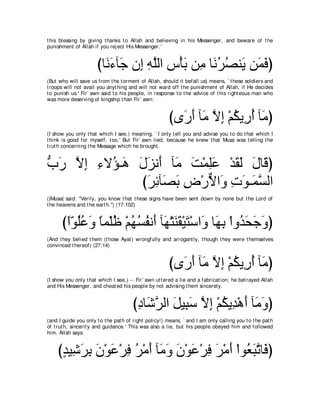 this blessing by giving thanks to Allah and believing in his Messenger, and beware of the
punishment of Allah if you reject His Messenger.'
(فَمَن يَنصُرُنَا مِن بَأْسِ اللَّهِ إِن جَآءَنَا)
(But who will save us from the torment of Allah, should it befall us) means, `these soldiers and
troops will not avail you anything and will not ward off the punishment of Allah, if He decides
to punish us.' Fir`awn said to his people, in response to the advice of this righteous man who
was more deserving of kingship than Fir`awn:
(مَآ أُرِيكُمْ إِلاَّ مَآ أَرَى)
(I show you only that which I see,) meaning, `I only tell you and advise you to do that which I
think is good for myself, too.' But Fir`awn lied, because he knew that Musa was telling the
truth concerning the Message which he brought.
(قَالَ لَقَدْ عَلِمْتَ مَآ أَنزَلَ هَـؤُلاءِ إِلاَّ رَبُّ
السَّمَـوَتِ وَالاٌّرْضِ بَصَآئِرَ)
((Musa) said: "Verily, you know that these signs have been sent down by none but the Lord of
the heavens and the earth.") (17:102)
(وَجَحَدُواْ بِهَا وَاسْتَيْقَنَتْهَآ أَنفُسُهُمْ ظُلْماً وَعُلُوّاً)
(And they belied them (those Ayat) wrongfully and arrogantly, though they were themselves
convinced thereof) (27:14)
(مَآ أُرِيكُمْ إِلاَّ مَآ أَرَى)
(I show you only that which I see,) -- Fir`awn uttered a lie and a fabrication; he betrayed Allah
and His Messenger, and cheated his people by not advising them sincerely.
(وَمَآ أَهْدِيكُمْ إِلاَّ سَبِيلَ الرَّشَادِ)
(and I guide you only to the path of right policy!) means, `and I am only calling you to the path
of truth, sincerity and guidance.' This was also a lie, but his people obeyed him and followed
him. Allah says:
(فَاتَّبَعُواْ أَمْرَ فِرْعَوْنَ وَمَآ أَمْرُ فِرْعَوْنَ بِرَشِيدٍ)